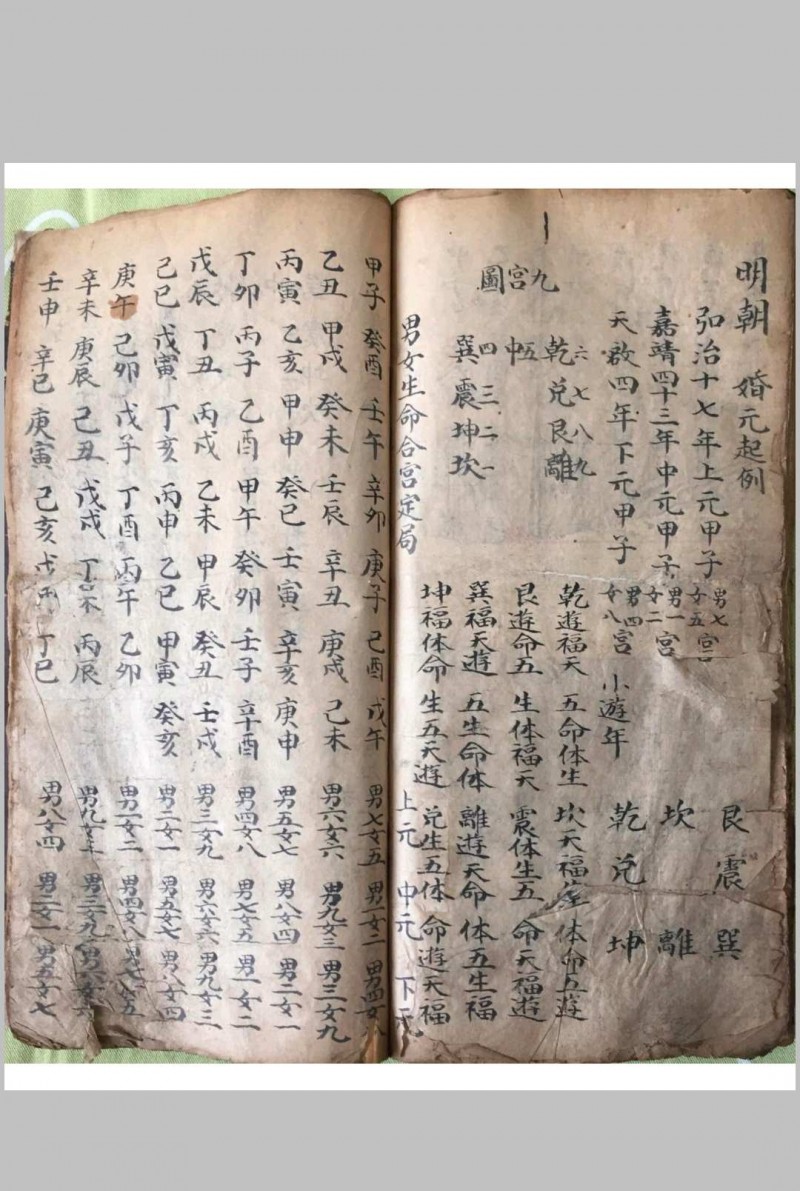 明朝 婚元起例
弘治十七年上元甲子 男七女五宮
嘉靖四十三年中元甲子 男一女二宮
天啟四年下元甲子 男四女八宮 小遊年
艮震 巽
坎 離
乾兌 坤
九宮圖
六七八九
乾兌艮離
五
中
四三二一
巽震坤坎
乾遊福天 五命体生 坎天福 体命五遊
艮遊命五 生体福天 震体生五 命天福遊
巽福天遊 五生命体 離遊天命 体五生福
坤福体命 生五天遊 兌生五体 命遊天福
男女生命合宮定局 上元 中元 下元
甲子 癸酉 壬午 辛卯 庚子 己酉 戊午 男七女五 男一女二 男四女八
乙丑 甲戌 癸未 壬辰 辛丑 庚戌 己未 男六女六 男九女三 男三女九
丙寅 乙亥 甲申 癸巳 壬寅 辛亥 庚申 男五女七 男八女四 男二女一
丁卯 丙子 乙酉 甲午 癸卯 壬子 辛酉 男四女八 男七女五 男一女二
戊辰 丁丑 丙戌 乙未 甲辰 癸丑 壬戌 男三女九 男六女六 男九女三
己巳 戊寅 丁亥 丙申 乙巳 甲寅 癸亥 男二女一 男五女七 男八女四
庚午 己卯 戊子 丁酉 丙午 乙卯 男一女二 男四女八 男七女五
辛未 庚辰 己丑 戊戌 丁未 丙辰 男九女三 男三女九 男六女六
壬申 辛巳 庚寅 己亥 戊申 丁巳 男八女四 男二女一 男五女七